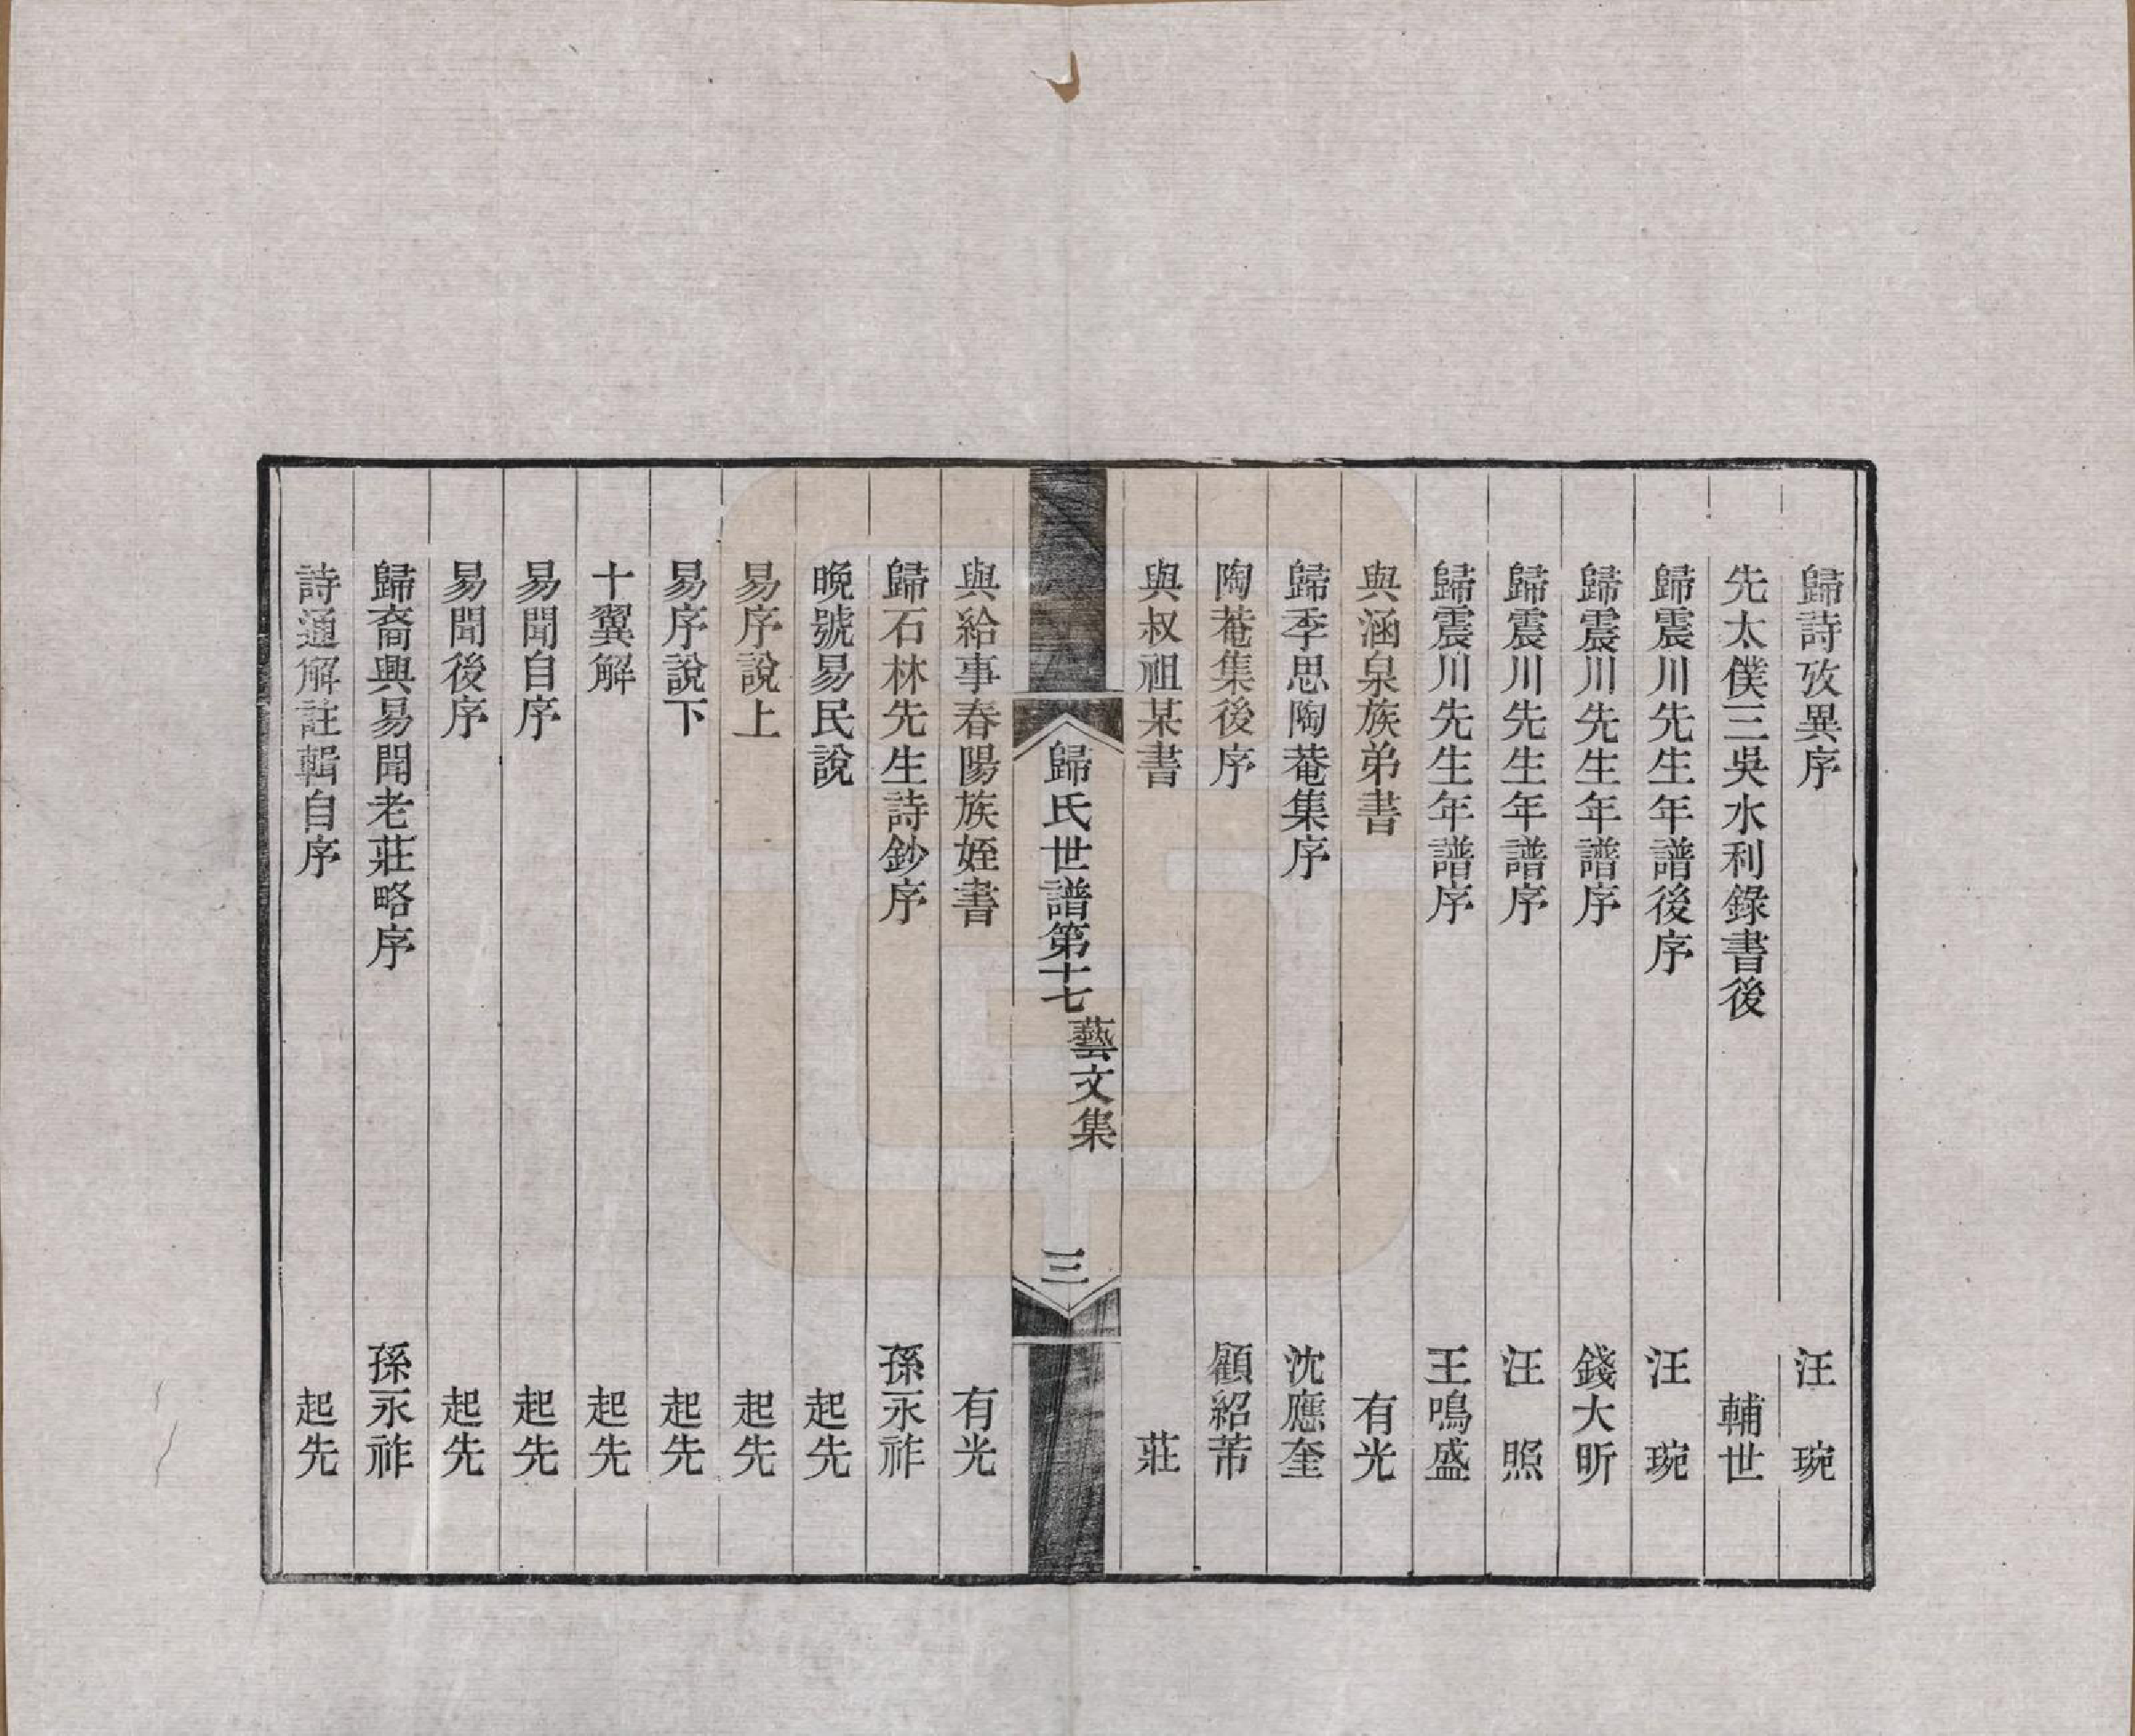 歸詩攷異序 汪琬
先太僕三吳水利錄書後 輔世
歸震川先生年譜後序 汪琬
歸震川先生年譜序 錢大昕
歸震川先生年譜序 汪照
歸震川先生年譜序 王鳴盛
與涵泉族弟書 有光
歸季思陶菴集序 沈應奎
陶菴集後序 顧紹芾
與叔祖某書 莊
歸氏世譜第十七 藝文集 三
與給事春陽族姪書 有光
歸石林先生詩鈔序 孫永祚
晚號易民說 起先
易序說上 起先
易序說下 起先
十翼解 起先
易聞自序 起先
易聞後序 起先
歸裔興易聞老莊略序 孫永祚
詩通解註輯自序 起先